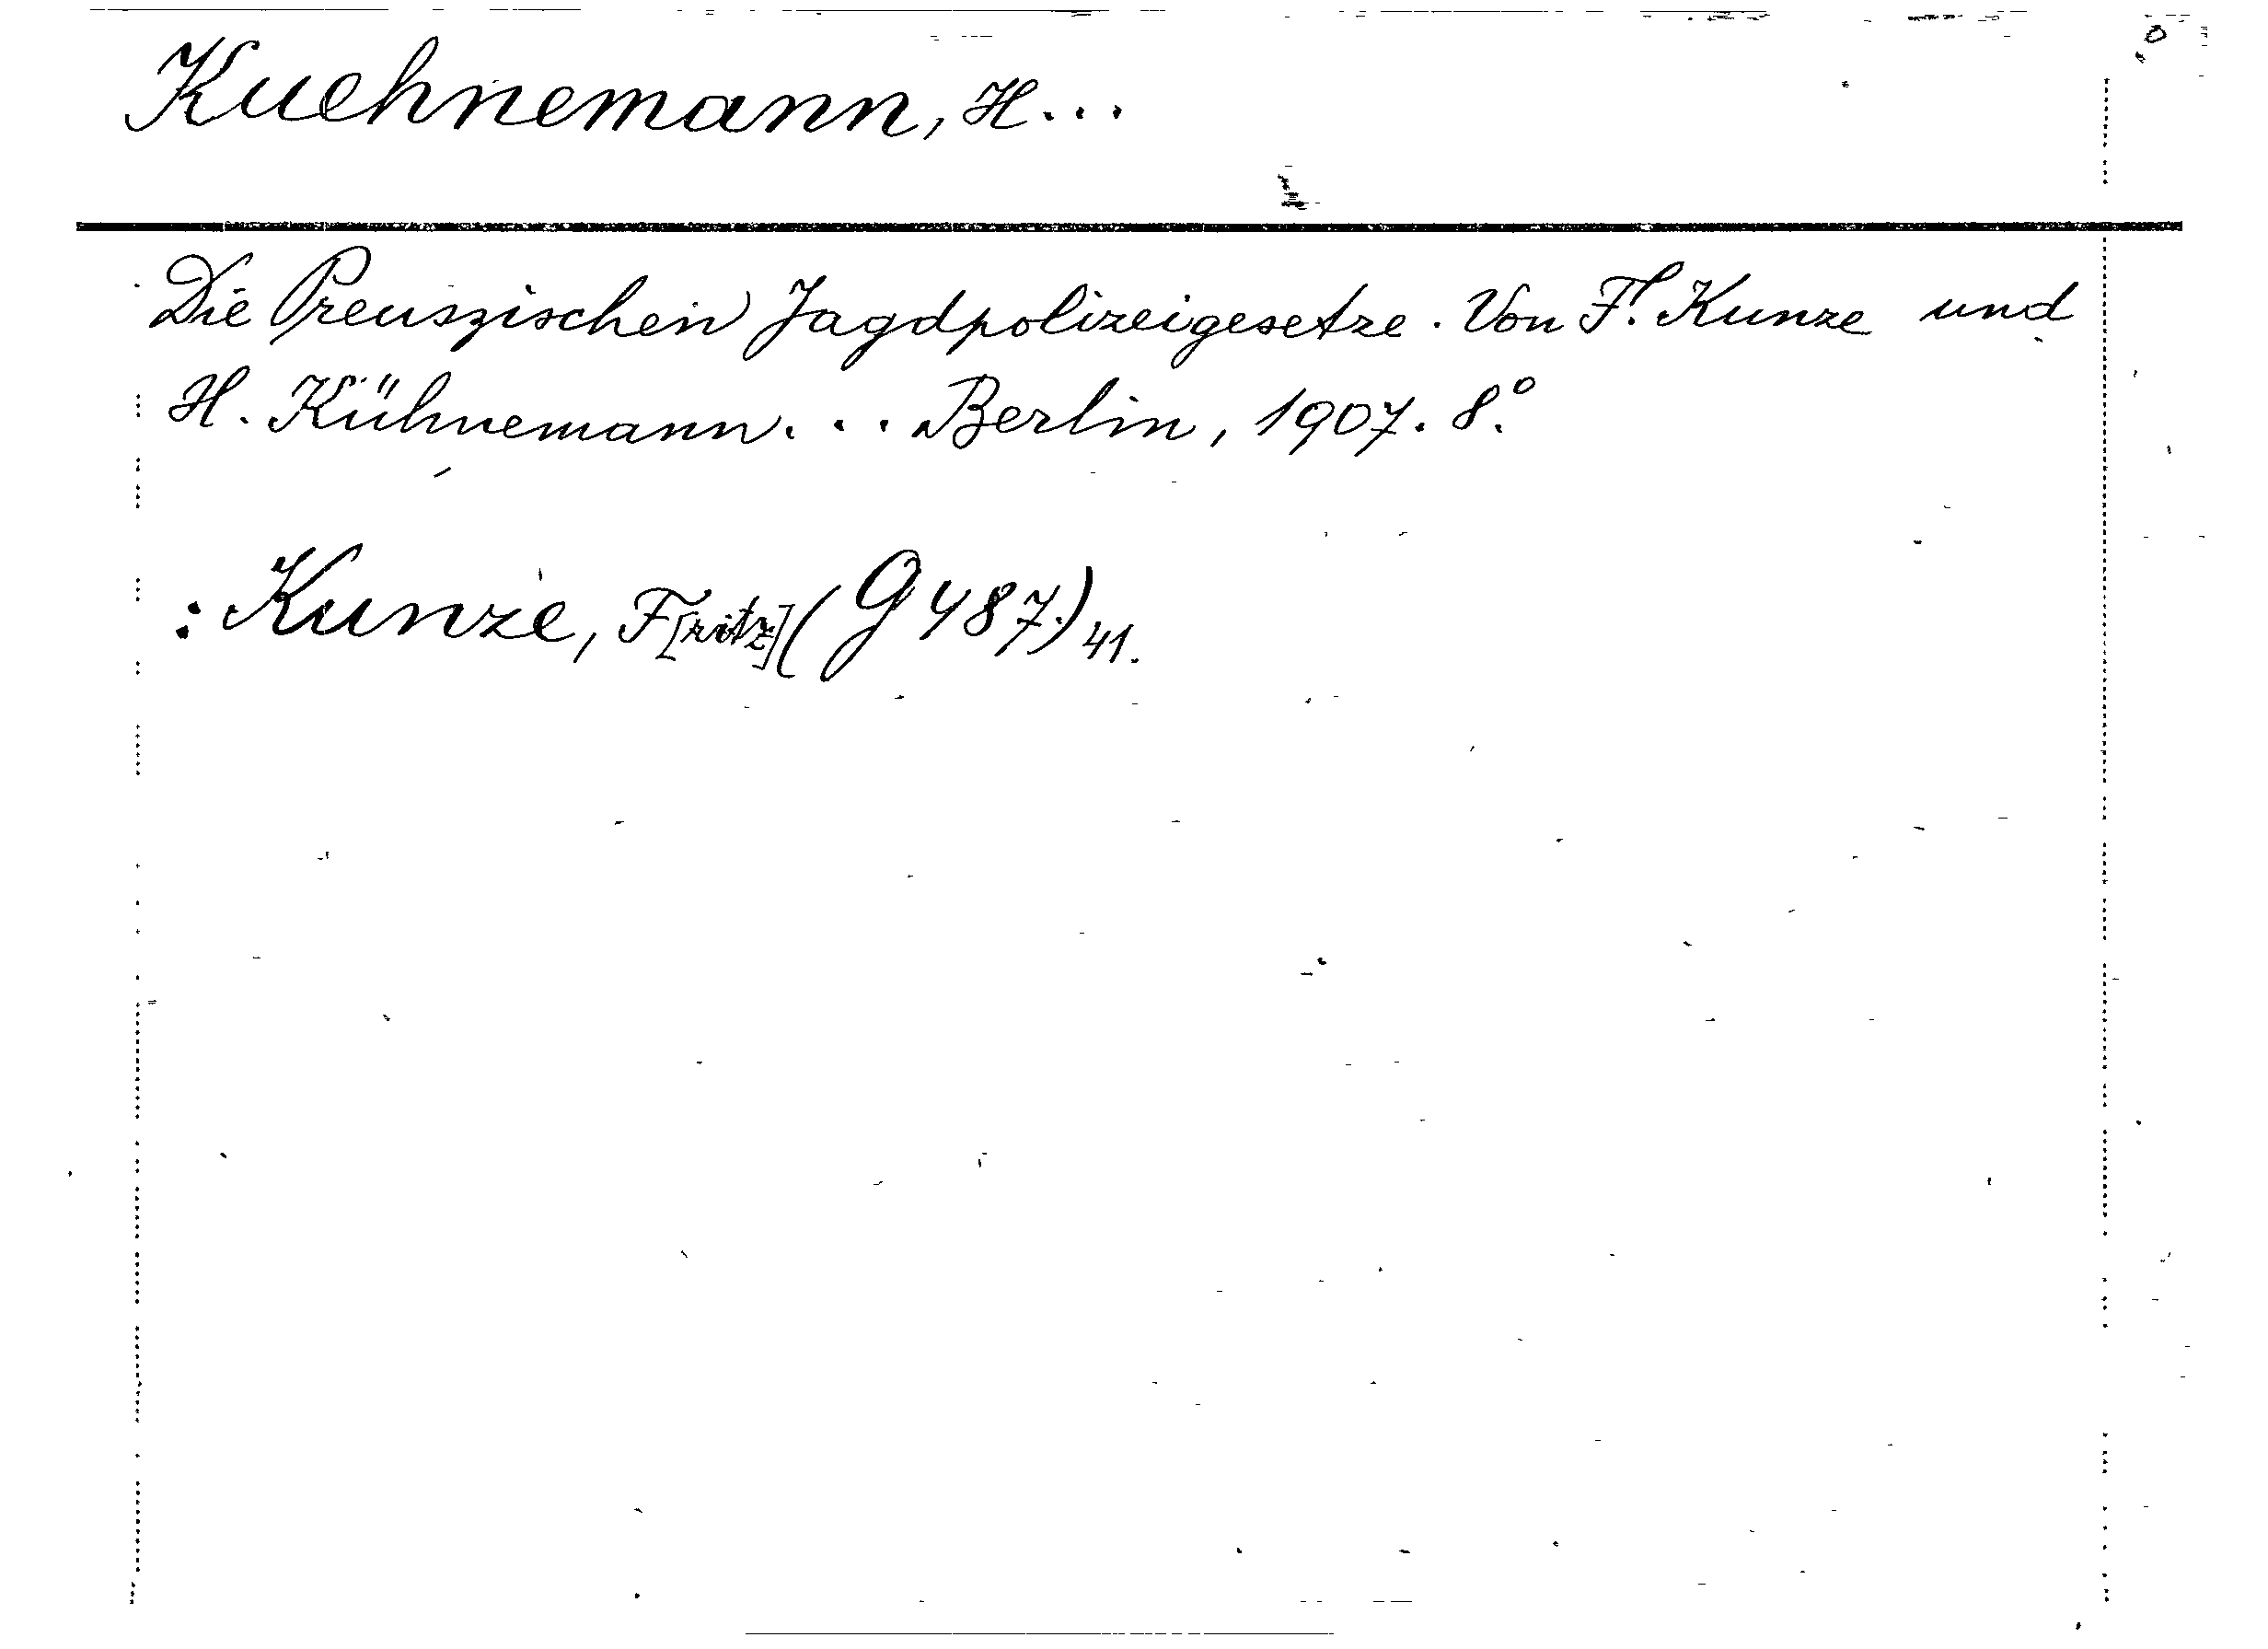 Kuehnemann, H...
Die Preuszischen Jagdpolizeigesetze. Von F. Kunze und
H. Kühnemann... Berlin, 1907. 8.°
: Kunze, F[ritz] (G 487.) 41.